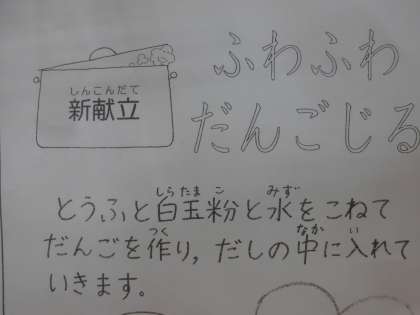 しんこんだて
新献立
ふわふわ
だんごじる
とうふと白玉粉と水をこねて
だんごを作り，だしの中に入れて
いきます。